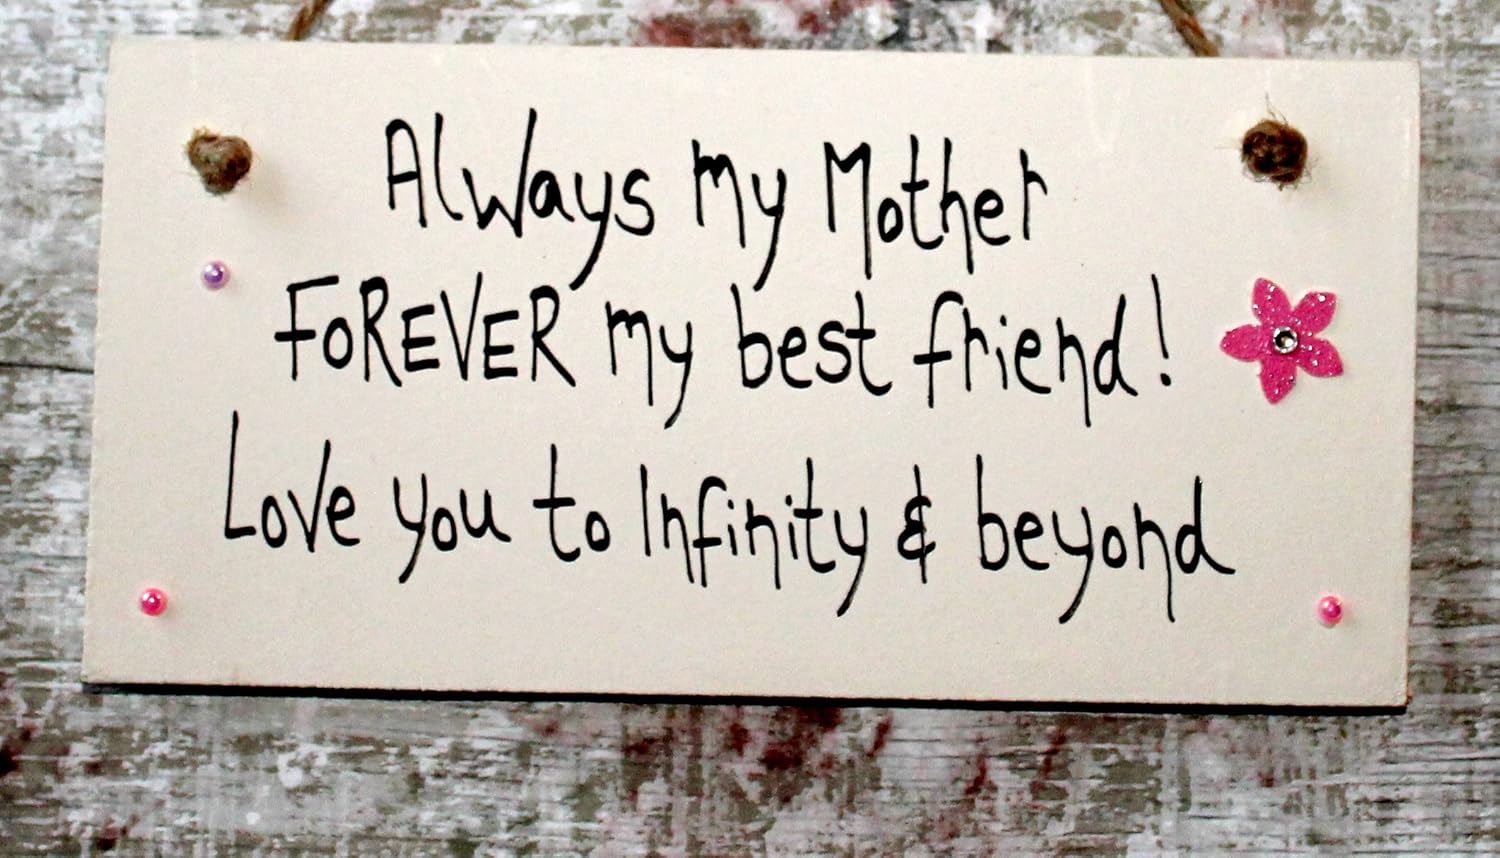 Always my Mother
FOREVER my best friend!
Love you to Infinity & beyond